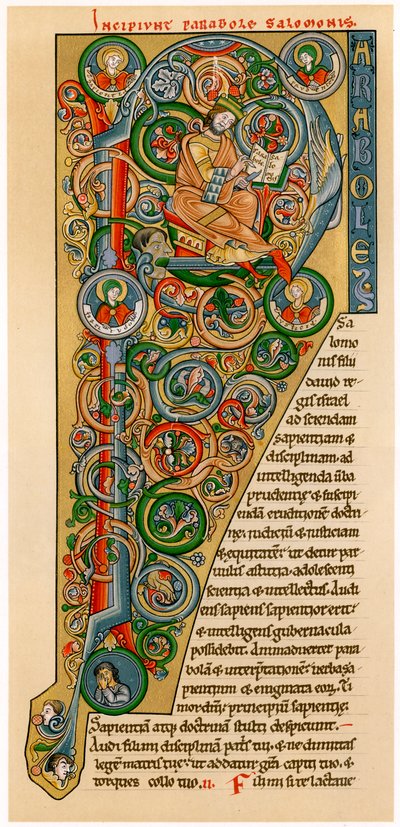 Incipiunt parabole salomonis.
PARABOLES
Sa
lomo
nis filii
david re
gis israel
ad sciendam
sapientiam &
disciplinam. ad
intelligenda v̄ba
prudentię & suscipi
endā eruditionē doctri
nę. judiciū & justiciam
& equitatē. ut detur par
vulis astutia. adolescenti
scientia & intellectus. Audi
ens sapiens sapientior erit.
& intelligens gubernacula
possidebit. Animadvertet para
bolā & interp̄tationē. verba sa
pientium & enigmata eoꝝ. Ti
mor dn̄i. principiū sapientię.
Sapientiā atq; doctrinā stulti despiciunt.
Audi fili mi disciplinā patⁱs tui. & ne dimittas
legē matris tuę. ut addatur gr̄a capiti tuo. &
torques collo tuo. ii. Fili mi si te lactave